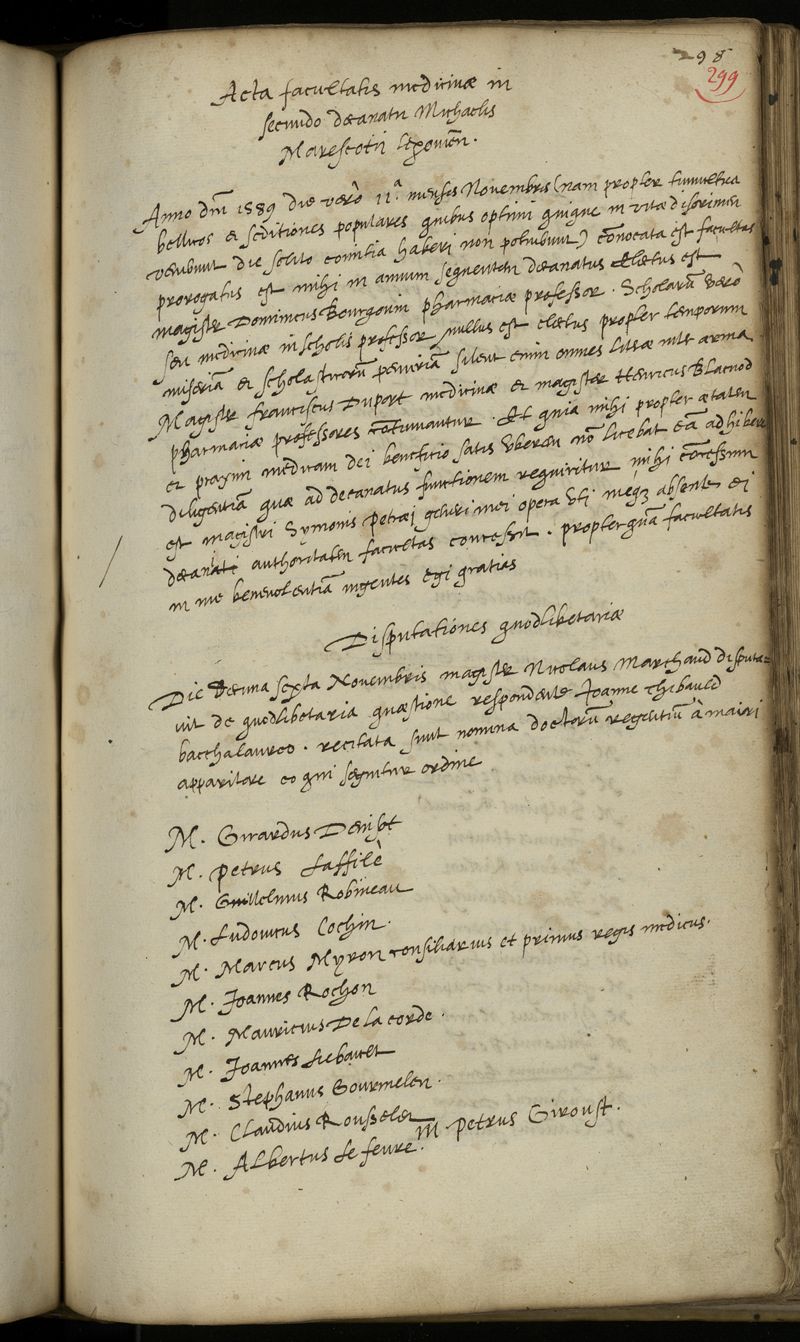 298
299
Acta facultatis medicinæ in
secundo decanatu Michaelis
Marescotii lexovien̄.
Anno dm̄ 1589 die vero 11ª. mensis Novembris (nam propter tumultus
bellicos et seditiones populares quibus optimi quique in vitæ discrimen
venibunt die solito comitia haberi non potuibunt) cōnocata est facultas
prorogatus est mihi in annum sequentem decanatus electus est
magister Dominicus Bourgoin pharmaciæ professor. Scholarū vero
seu medicinæ in scholis professor nullus est electus propter temporum
miseriam et scholasticorū penuriā silent enim omnes litteræ inter arma
Magister franciscus Duport medicinæ et magister Henricus Blacuod
pharmaciæ professores cōtinuantur. Et quia mihi propter ætatem
et praxim medicam dei beneficio satis uberem nō licebat eā adhibere
diligentiā quæ ad decanatus functionem requiritur mihi cōcessum
est magistri Symonis Petræi generi mei opera uti meque absente ei
decanati authoritatem facultas concessit. propter quā facultatis
in me benevolentiā ingentes egi gratias
Disputationes quodlibetariæ
Die decima sexta Novembris magister Nicolaus Marchand disputa-
vit de quodlibetaria quæstione respondente Joanne Thebauld
bacchalaureo. recitata sunt nomina doctorū regentiū à maiori
apparitore eo qui sequitur ordine
M. Girardus Denisot
M. Petrus Laffilé
M. Guillelmus Robineau
M. Ludovicus Cochin.
M. Marcus Myron consiliarius et primus regis medicus.
M. Joannes Rochon
M. Mauricius De la corde.
M. Joannes Liebault
M. Stephanus Gourmelen.
M. Claudius Rousselet
M. Albertus le fevre. M Petrus Giroust.